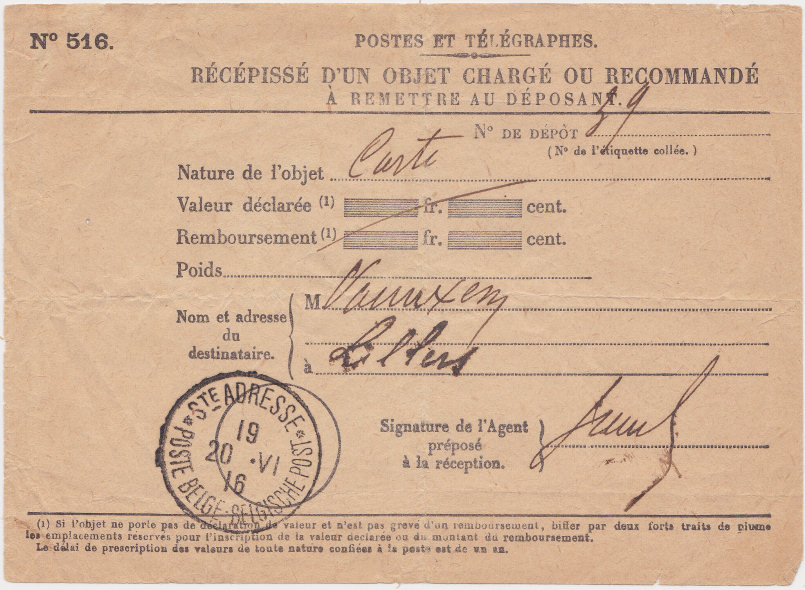 Nº 516.
POSTES ET TÉLÉGRAPHES.
RÉCÉPISSÉ D'UN OBJET CHARGÉ OU RECOMMANDÉ
À REMETTRE AU DÉPOSANT.
Nº DE DÉPÔT 59
(Nº de l'étiquette collée.)
Nature de l'objet Carte
Valeur déclarée (1) fr. cent.
Remboursement (1) fr. cent.
Poids
Nom et adresse du destinataire.
M
à Lillers
Signature de l'Agent
préposé
à la réception.
STE ADRESSE
19
20 · VI
16
POSTE BELGE-BELGISCHE POST
(1) Si l'objet ne porte pas de déclaration de valeur et n'est pas grevé d'un remboursement, biffer par deux forts traits de plume
les emplacements réservés pour l'inscription de la valeur déclarée ou du montant du remboursement.
Le délai de prescription des valeurs de toute nature confiées à la poste est de un an.